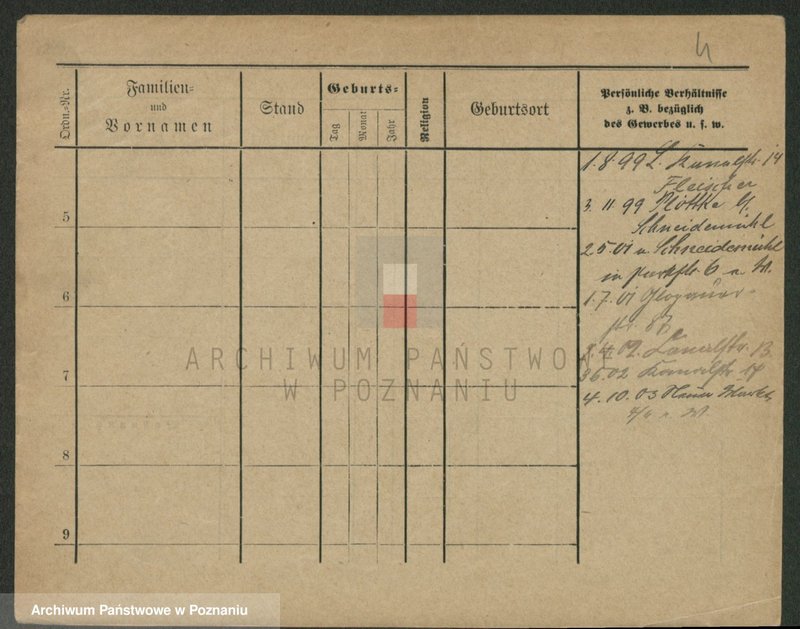 Ordn.-Nr.
Familien-
und
Vornamen
Stand
Geburts-
Tag
Monat
Jahr
Religion
Geburtsort
Persönliche Verhältnisse
z. B. bezüglich
des Gewerbes u. s. w.
1.8.99 Kanalstr. 14
Fleischer
3.11.99 Plottke
Schneidemühl
2.5.01 v. Schneidemühl
in Parkstr. 6
1.7.01 Glogauer-
str. 87
02. Kanalstr. 13
02 Kanalstr. 14
4.10.03
5
6
7
8
9
ARCHIWUM PAŃSTWOWE
W POZNANIU
Archiwum Państwowe w Poznaniu